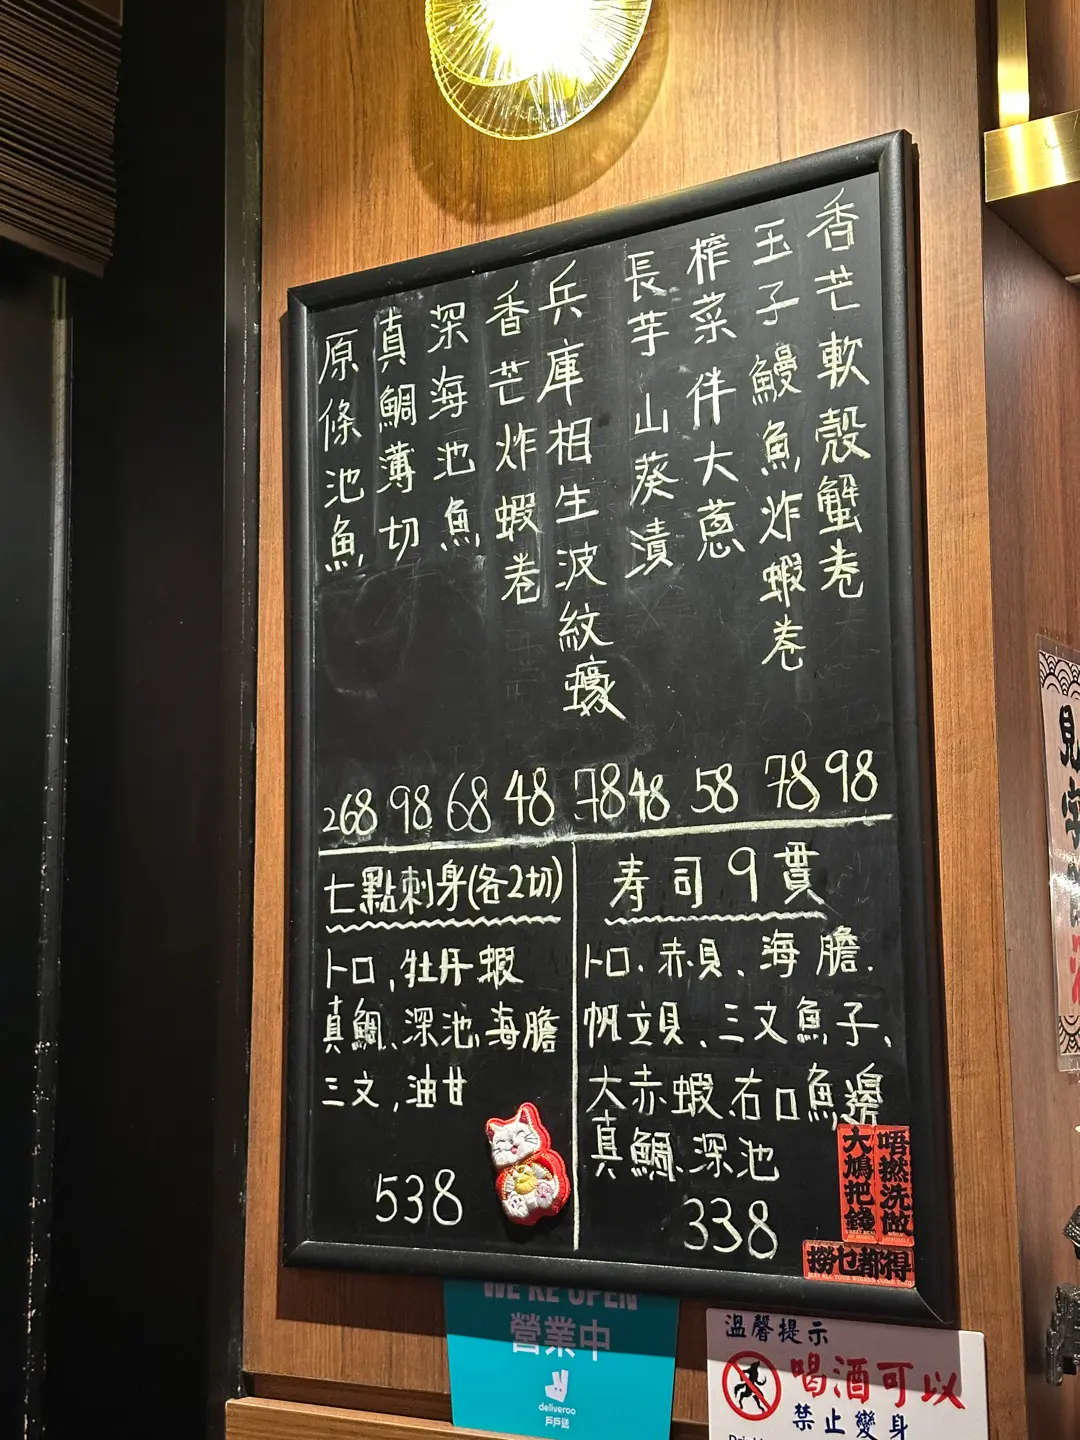 香芒軟殼蟹卷
98
玉子鰻魚炸蝦卷
78
榨菜伴大蔥
58
長芋山葵漬
48
兵庫相生波紋蠔
78
香芒炸蝦卷
48
深海池魚
68
真鯛薄切
98
原條池魚
268
七點刺身(各2切)
トロ,牡丹蝦
真鯛、深池、海膽
三文,油甘
538
寿司9貫
トロ.赤貝、海膽.
帆立貝、三文魚子、
大赤蝦、右口魚邊
真鯛、深池
338
唔撚洗做
大鳩把錢
撈乜都得
WE'RE OPEN
營業中
deliveroo
戶戶送
溫馨提示
喝酒可以
禁止變身
見字